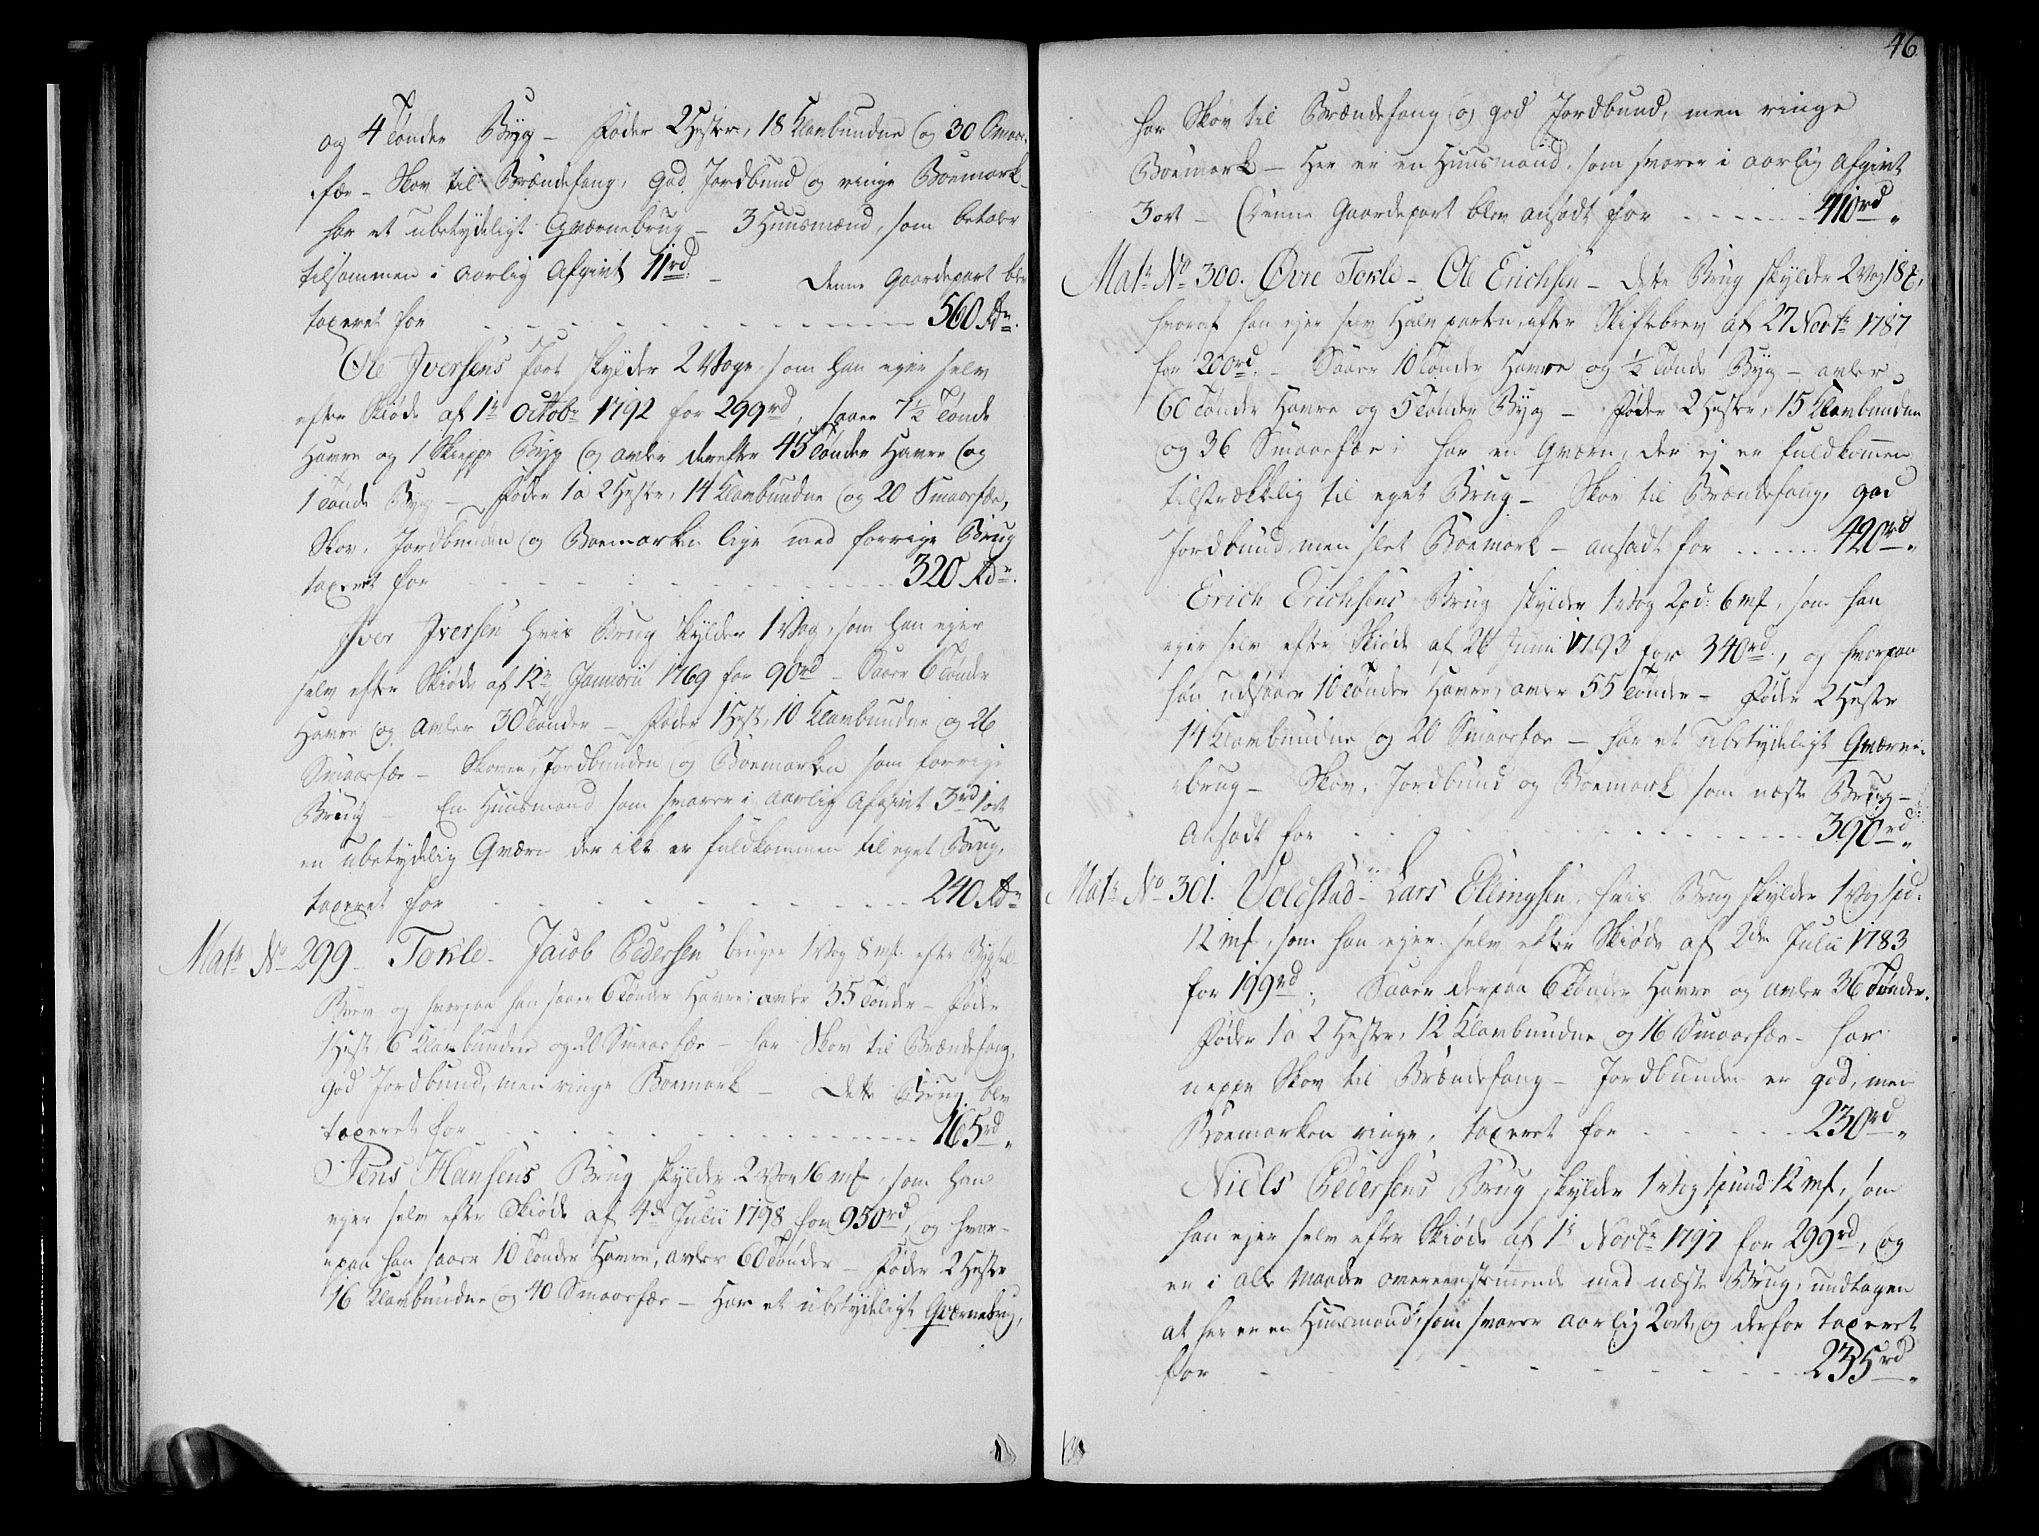 og 4 Tønder Byg – Føder 2 Hester, 18 Klavbundne og 30 Smaae-
fæe – Skov til Brændefang, God Jordbund og ringe Boemark –
har et ubetydeligt Qværnebrug – 3 Huusmænd, som betaler
tilsammen i aarlig Afgivt 11rd – Denne Gaardepart blev
taxeret for - - - 560 Rdr.
Ole Iversens Part skylder 2 Voger, som han ejer selv
efter Skiøde af 1te Octobr 1792 for 299rd, saaer 7½ Tønde
Havre og 1 Skieppe Byg og avler derefter 45 Tønder Havre og
1 Tønde Byg – Føder 1 a 2 Hester, 14 Klavbundne og 20 Smaaefæe,
Skov, Jordbunden og Boemarken lige med forrige Brug
taxeret for - - - 320 Rdr.
Iver Iversen hvis Brug skylder 1 Vog, som han ejer
selv efter Skiøde af 12te Januarii 1769 for 90rd – Saaer 6 Tønder
Havre og avler 30 Tønder – Føder 1 Hest, 10 Klavbundne og 26
Smaaefæe – Skoven, Jordbunden og Boemarken som forrige
Brug – En Huusmand som svarer i aarlig Afgivt 3rd 1 ort
en ubetydelig Qværn der ikke er fuldkommen til eget Brug,
taxeret for - - - 240 Rdr
Matr No 299 – Torkle – Jacob Pedersen bruger 1 Vog 8 mf. efter Bygsel
Brev og hvorpaa han saaer 6 Tønder Havre; avler 35 Tønder – Føder
1 Hest 6 Klavbundne og 20 Smaaefæe – har Skov til Brændefang,
god Jordbund, men ringe Boemark – Dette Brug blev
taxeret for - - - 165rd „
Jens Hansens Brug skylder 2 Vog 16 mf, som han
ejer selv efter Skiøde af 4de Julii 1798 for 950rd, og hvor-
paa han saaer 10 Tønder Havre, avler 60 Tønder – Føder 2 Hester
16 Klavbundne og 40 Smaaefæe – Har et ubetydeligt Qværnebrug,
46
har Skov til Brændefang og god Jordbund, men ringe
Boemark – Her er en Huusmand, som svarer i aarlig Afgivt
3 ort – Denne Gaardepart blev ansadt for - - - 410rd „
Matr No 300. Øvre Torkle – Ole Erichsen – dette Brug skylder 2 Vog 18
hvoraf han ejer selv Halvparten, efter Skiftebrev af 27 Novbr 1787
for 200rd. – Saaer 10 Tønder Havre og ½ Tønde Byg – avler
60 Tønder Havre og 5 Tønder Byg – Føder 2 Hester, 15 Klavbundne
og 36 Smaaefæe; har en Qværn, der ej er fuldkommen
tilstrækkelig til eget Brug – Skov til Brændefang, god
Jordbund, men slet Boemark – ansadt for - - - 420rd „
Erich Erichsens Brug skylder 1 Vog 2pd: 6 mf, som han
ejer selv efter Skiøde af 26 Junii 1793 for 340rd, og hvorpaa
han udsaaer 10 Tønder Havre, avler 55 Tønder – Føder 2 Hester
14 Klavbundne og 20 Smaaefæe – har et ubetydeligt Qværne-
brug – Skov, Jordbund og Boemark som næste Brug –
Ansadt for - - - 390rd „
Matr No 301. Voldstad – Lars Ellingsen, hvis Brug skylder 1 Vog 1pd:
12 mf, som han ejer selv efter Skiøde af 2den Julii 1783
for 199rd; Saaer derpaa 6 Tønder Havre og avler 36 Tønder.
Føder 1 a 2 Hester, 12 Klavbundne og 16 Smaaefæe – har
neppe Skov til Brændefang – Jordbunden er god, men
Boemarken ringe, taxeret for - - - 230rd „
Niels Pedersens Brug skylder 1 Vog 1 pund 12 mf, som
han ejer selv efter Skiøde af 1te Novbr 1797 for 299rd, og
er i alle Maader overeenstemmende med næste Brug, undtagen
at her er en Huusmand, som svarer aarlig 2 ort, og derfor taxeret
for - - - 235rd „